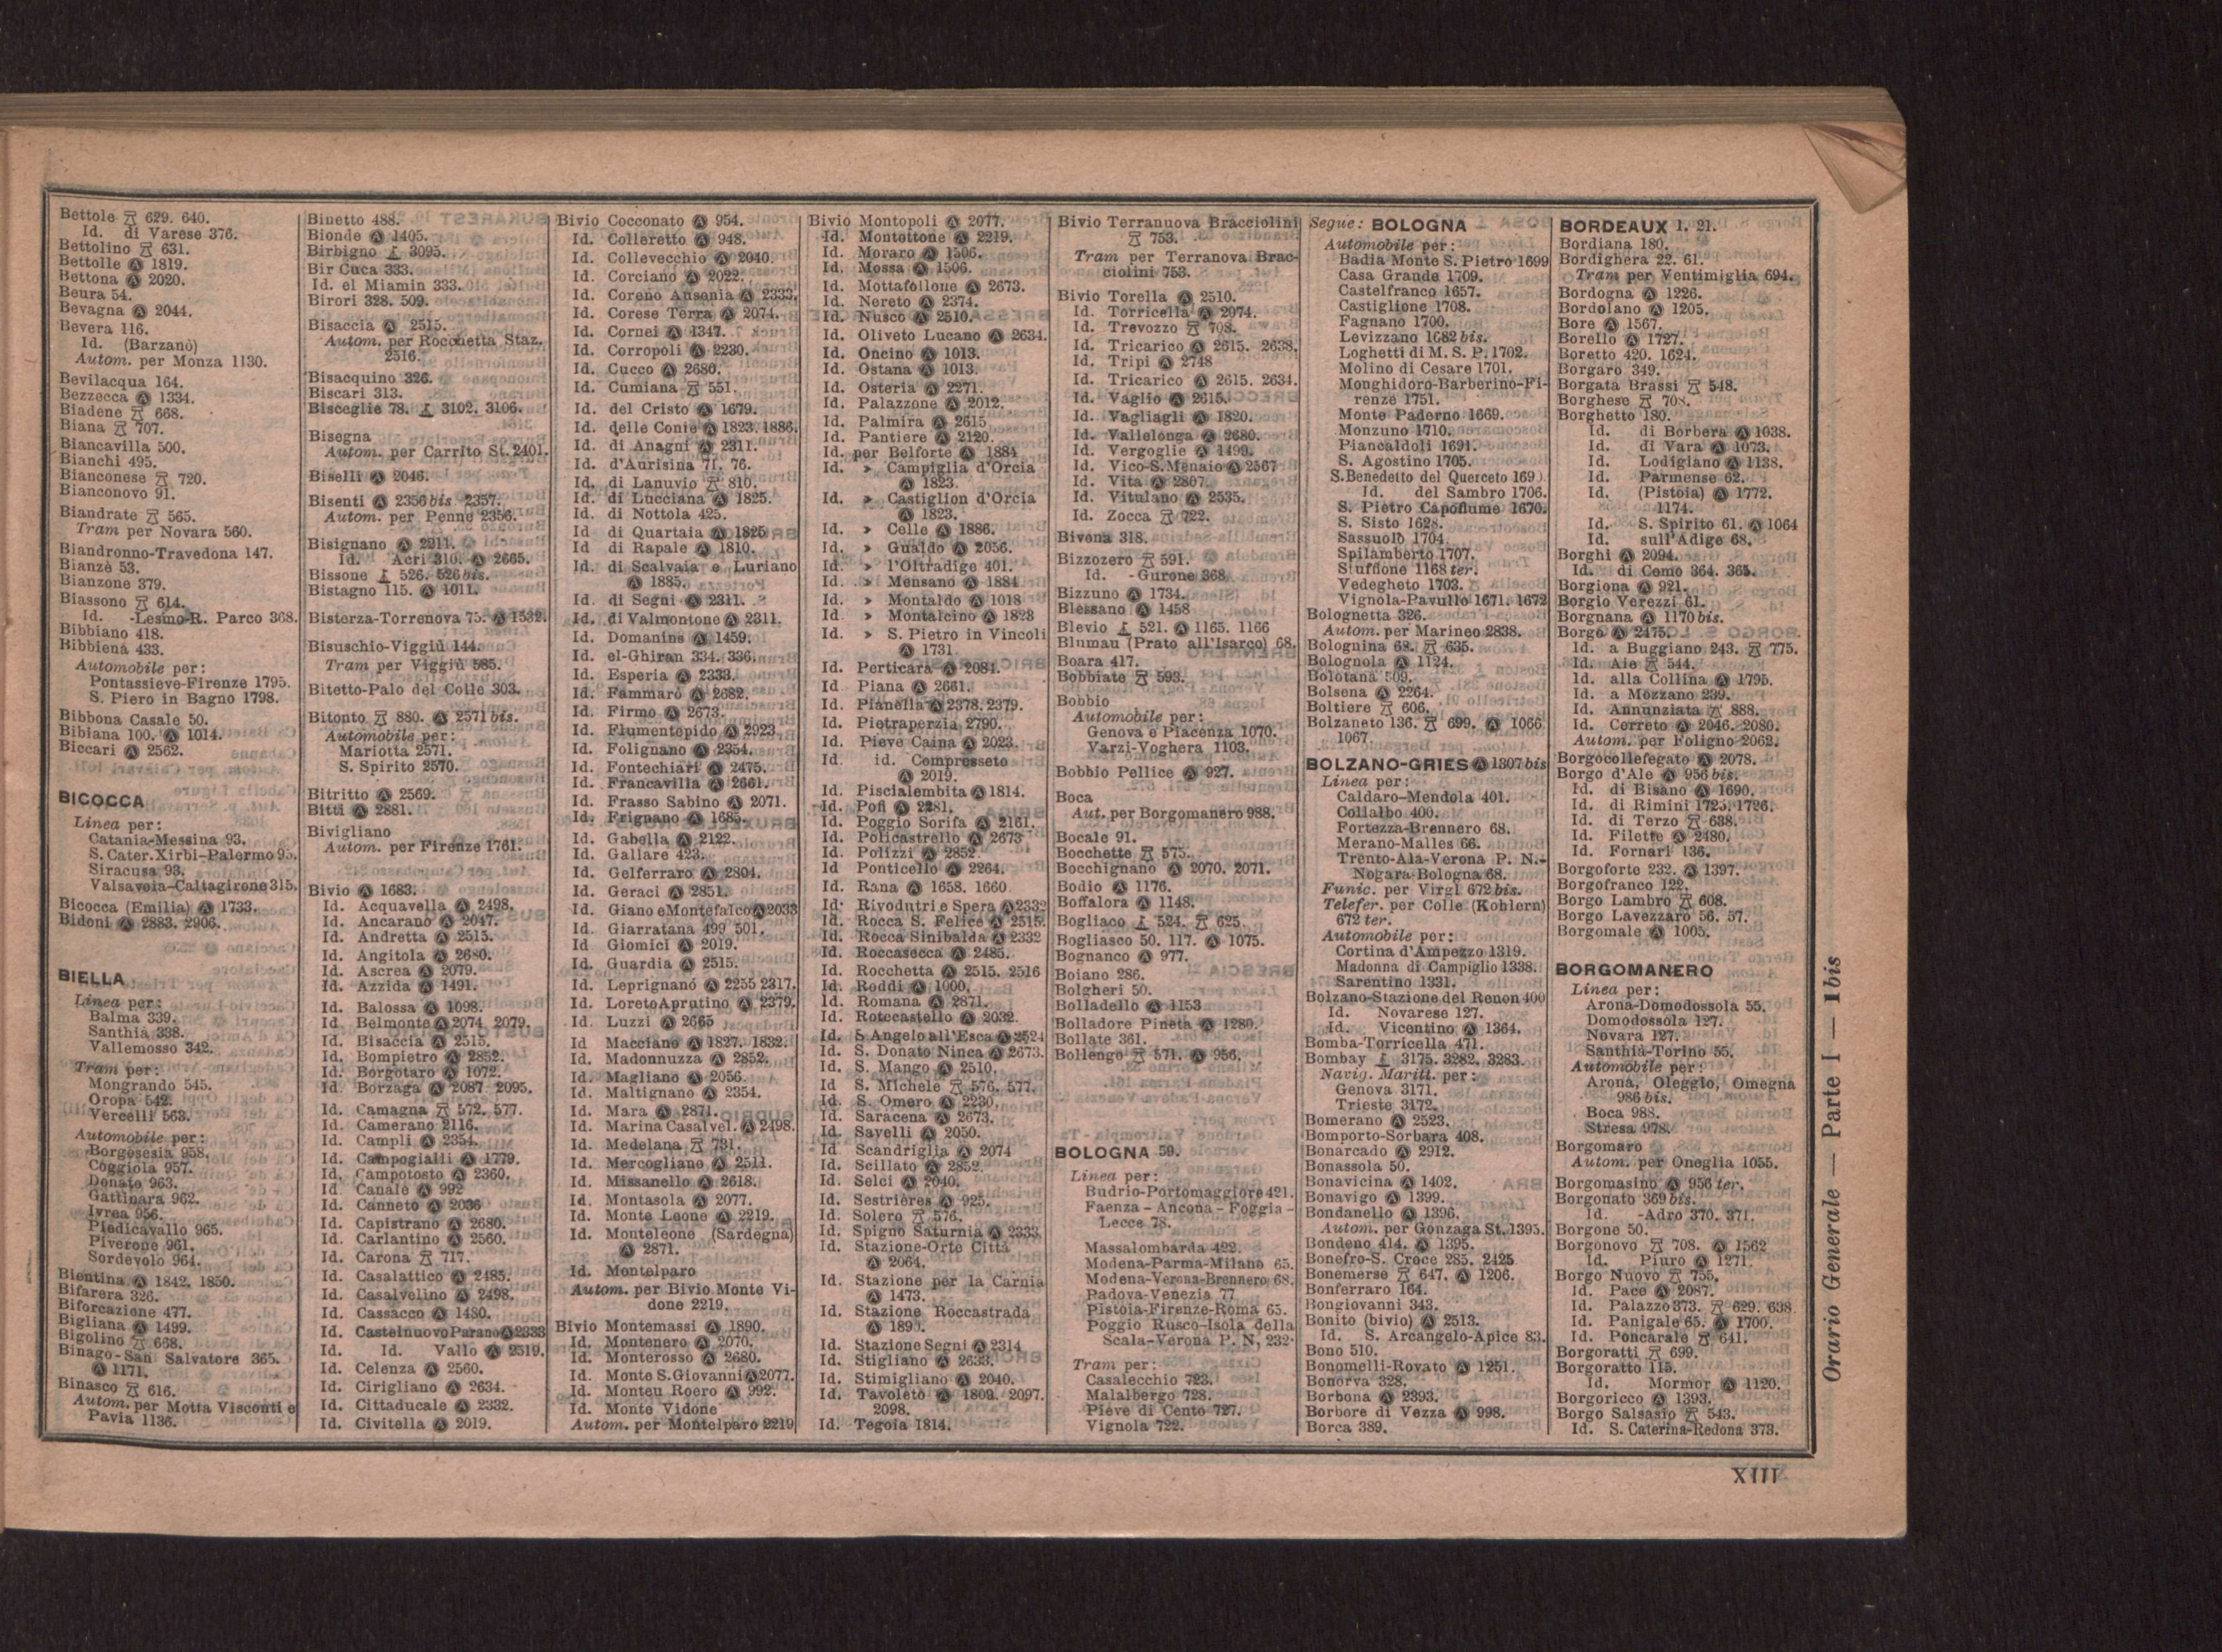 Bettole 629. 640.
Id. di Varese 376.
Bettolino 631.
Bettolle Ⓐ 1819.
Bettona Ⓐ 2020.
Beura 54.
Bevagna Ⓐ 2044.
Bevera 116.
Id. (Barzanò)
Autom. per Monza 1130.
Bevilacqua 164.
Bezzecca Ⓐ 1334.
Biadene 668.
Biana 707.
Biancavilla 500.
Bianchi 495.
Bianconese 720.
Bianconovo 91.
Biandrate 565.
Tram per Novara 560.
Biandronno-Travedona 147.
Bianzè 53.
Bianzone 379.
Biassono 614.
Id. -Lesmo-R. Parco 368.
Bibbiano 418.
Bibbiena 433.
Automobile per:
Pontassieve-Firenze 1795.
S. Piero in Bagno 1798.
Bibbona Casale 50.
Bibiana 100. Ⓐ 1014.
Biccari Ⓐ 2562.
BICOCCA
Linea per:
Catania-Messina 93.
S. Cater. Xirbi-Palermo 95.
Siracusa 93.
Valsavoia-Caltagirone 315.
Bicocca (Emilia) Ⓐ 1733.
Bidoni Ⓐ 2883. 2906.
BIELLA
Linea per:
Balma 339.
Santhià 338.
Vallemosso 342.
Tram per:
Mongrando 545.
Oropa 542.
Vercelli 563.
Automobile per:
Borgosesia 958.
Coggiola 957.
Donato 963.
Gattinara 962.
Ivrea 956.
Piedicavallo 965.
Piverone 961.
Sordevolo 964.
Bientina Ⓐ 1842. 1850.
Bifarera 326.
Biforcazione 477.
Bigliana Ⓐ 1499.
Bigolino 668.
Binago-San Salvatore 365.
Ⓐ 1171.
Binasco 616.
Autom. per Motta Visconti e
Pavia 1136.
Binetto 488.
Bionde Ⓐ 1405.
Birbigno 3095.
Bir Cuca 333.
Id. el Miamin 333.
Birori 328. 509.
Bisaccia Ⓐ 2515.
Autom. per Rocchetta Staz.
2516.
Bisacquino 326.
Biscari 313.
Bisceglie 78. 3102. 3106.
Bisegna
Autom. per Carrito St. 2401.
Biselli Ⓐ 2046.
Bisenti Ⓐ 2356 bis 2357.
Autom. per Penne 2356.
Bisignano Ⓐ 2911.
Id. Acri 310. Ⓐ 2665.
Bissone 526. 526 bis.
Bistagno 115. Ⓐ 1011.
Bisterza-Torrenova 75. Ⓐ 1532.
Bisuschio-Viggiù 144.
Tram per Viggiù 585.
Bitetto-Palo del Colle 303.
Bitonto 880. Ⓐ 2571 bis.
Automobile per:
Mariotta 2571.
S. Spirito 2570.
Bitritto Ⓐ 2569.
Bitti Ⓐ 2881.
Bivigliano
Autom. per Firenze 1761.
Bivio Ⓐ 1683.
Id. Acquavella Ⓐ 2498.
Id. Ancarano Ⓐ 2047.
Id. Andretta Ⓐ 2515.
Id. Angitola Ⓐ 2680.
Id. Ascrea Ⓐ 2079.
Id. Azzida Ⓐ 1491.
Id. Balossa Ⓐ 1098.
Id. Belmonte Ⓐ 2074. 2079.
Id. Bisaccia Ⓐ 2515.
Id. Bompietro Ⓐ 2852.
Id. Borgotaro Ⓐ 1072.
Id. Borzaga Ⓐ 2087. 2095.
Id. Camagna 572. 577.
Id. Camerano 2116.
Id. Campli Ⓐ 2354.
Id. Campogialli Ⓐ 1779.
Id. Campotosto Ⓐ 2360.
Id. Canale Ⓐ 992
Id. Canneto Ⓐ 2036
Id. Capistrano Ⓐ 2680.
Id. Carlantino Ⓐ 2560.
Id. Carona 717.
Id. Casalattico Ⓐ 2485.
Id. Casalvelino Ⓐ 2498.
Id. Cassacco Ⓐ 1480.
Id. Castelnuovo Parano Ⓐ 2333
Id. Id. Vallo Ⓐ 2519.
Id. Celenza Ⓐ 2560.
Id. Cirigliano Ⓐ 2634.
Id. Cittaducale Ⓐ 2332.
Id. Civitella Ⓐ 2019.
Bivio Cocconato Ⓐ 954.
Id. Colleretto Ⓐ 948.
Id. Collevecchio Ⓐ 2040.
Id. Corciano Ⓐ 2022.
Id. Coreno Ausonia Ⓐ 2333.
Id. Corese Terra Ⓐ 2074.
Id. Cornei Ⓐ 1347.
Id. Corropoli Ⓐ 2230.
Id. Cucco Ⓐ 2680.
Id. Cumiana 551.
Id. del Cristo Ⓐ 1679.
Id. delle Conie Ⓐ 1823. 1886.
Id. di Anagni Ⓐ 2311.
Id. d'Aurisina 71. 76.
Id. di Lanuvio 810.
Id. di Lucciana Ⓐ 1825.
Id. di Nottola 425.
Id di Quartaia Ⓐ 1825
Id di Rapale Ⓐ 1810.
Id. di Scalvaia e Luriano
Ⓐ 1885.
Id. di Segni Ⓐ 2311.
Id. di Valmontone Ⓐ 2311.
Id. Domanins Ⓐ 1459.
Id. el-Ghiran 334. 336.
Id. Esperia Ⓐ 2333.
Id. Fammarò Ⓐ 2682.
Id. Firmo Ⓐ 2673.
Id. Flumentepido Ⓐ 2923
Id. Folignano Ⓐ 2354.
Id. Fontechiari Ⓐ 2475.
Id. Francavilla Ⓐ 2661.
Id. Frasso Sabino Ⓐ 2071.
Id. Frignano Ⓐ 1685.
Id. Gabella Ⓐ 2122.
Id. Gallare 423.
Id. Gelferraro Ⓐ 2804.
Id. Geraci Ⓐ 2851.
Id. Giano e Montefalco Ⓐ 2033
Id. Giarratana 499 501.
Id Giomici Ⓐ 2019.
Id. Guardia Ⓐ 2515.
Id. Leprignano Ⓐ 2255 2317.
Id. Loreto Aprutino Ⓐ 2379.
Id. Luzzi Ⓐ 2665
Id Macciano Ⓐ 1827. 1832.
Id. Madonnuzza Ⓐ 2852.
Id. Magliano Ⓐ 2056.
Id. Maltignano Ⓐ 2354.
Id. Mara Ⓐ 2871.
Id. Marina Casalvel. Ⓐ 2498.
Id. Medelana 731.
Id. Mercogliano Ⓐ 2511.
Id. Missanello Ⓐ 2618.
Id. Montasola Ⓐ 2077.
Id. Monte Leone Ⓐ 2219.
Id. Monteleone (Sardegna)
Ⓐ 2871.
Id. Montelparo
Autom. per Bivio Monte Vi-
done 2219.
Bivio Montemassi Ⓐ 1890.
Id. Montenero Ⓐ 2070.
Id. Monterosso Ⓐ 2680.
Id. Monte S. Giovanni Ⓐ 2077.
Id. Monteu Roero Ⓐ 992.
Id. Monte Vidone
Autom. per Montelparo 2219
Bivio Montopoli Ⓐ 2077.
Id. Montottone Ⓐ 2219.
Id. Moraro Ⓐ 1506.
Id. Mossa Ⓐ 1506.
Id. Mottafollone Ⓐ 2673.
Id. Nereto Ⓐ 2374.
Id. Nusco Ⓐ 2510.
Id. Oliveto Lucano Ⓐ 2634.
Id. Oncino Ⓐ 1013.
Id. Ostana Ⓐ 1013.
Id. Osteria Ⓐ 2271.
Id. Palazzone Ⓐ 2012.
Id. Palmira Ⓐ 2615
Id. Pantiere Ⓐ 2120.
Id. per Belforte Ⓐ 1884
Id. » Campiglia d'Orcia
Ⓐ 1823.
Id. » Castiglion d'Orcia
Ⓐ 1823.
Id. » Celle Ⓐ 1886.
Id. » Gualdo Ⓐ 2056.
Id. » l'Oltradige 401.
Id. » Mensano Ⓐ 1884
Id. » Montaldo Ⓐ 1018
Id. » Montalcino Ⓐ 1823
Id. » S. Pietro in Vincoli
Ⓐ 1731
Id. Perticara Ⓐ 2084.
Id Piana Ⓐ 2661.
Id. Pianella Ⓐ 2378. 2379.
Id. Pietraperzia 2790.
Id. Pieve Caina Ⓐ 2023.
Id. id. Compresseto
Ⓐ 2019.
Id. Piscialembita Ⓐ 1814.
Id. Pofi Ⓐ 2281.
Id. Poggio Sorifa Ⓐ 2161.
Id. Policastrello Ⓐ 2673
Id. Polizzi Ⓐ 2852
Id Ponticello Ⓐ 2264.
Id. Rana Ⓐ 1658. 1660
Id. Rivodutri e Spera Ⓐ 2332
Id. Rocca S. Felice Ⓐ 2515.
Id. Rocca Sinibalda Ⓐ 2332
Id. Roccasecca Ⓐ 2485.
Id. Rocchetta Ⓐ 2515. 2516
Id. Roddi Ⓐ 1000.
Id. Romana Ⓐ 2871.
Id. Rotecastello Ⓐ 2032.
Id. S Angelo all'Esca Ⓐ 2524
Id. S. Donato Ninea Ⓐ 2673.
Id. S. Mango Ⓐ 2510.
Id S. Michele 576. 577.
Id. S. Omero Ⓐ 2230.
Id. Saracena Ⓐ 2673.
Id. Savelli Ⓐ 2050.
Id Scandriglia Ⓐ 2074
Id. Scillato Ⓐ 2852.
Id. Selci Ⓐ 2040.
Id. Sestrières Ⓐ 925.
Id. Solero 576.
Id. Spigno Saturnia Ⓐ 2333
Id. Stazione-Orte Città
Ⓐ 2064.
Id. Stazione per la Carnia
Ⓐ 1473.
Id. Stazione Roccastrada
Ⓐ
Id. Stazione Segni Ⓐ 2314
Id. Stigliano Ⓐ 2633.
Id. Stimigliano Ⓐ 2040.
Id. Tavoleto Ⓐ 1809. 2097.
2098.
Id. Tegoia 1814.
Bivio Terranuova Bracciolini
753.
Tram per Terranova Brac-
ciolini 753.
Bivio Torella Ⓐ 2510.
Id. Torricella Ⓐ 2074.
Id. Trevozzo 708.
Id. Tricarico Ⓐ 2615. 2638.
Id. Tripi Ⓐ 2748
Id. Tricarico Ⓐ 2615. 2634.
Id. Vaglio Ⓐ 2615.
Id. Vagliagli Ⓐ 1820.
Id. Vallelonga Ⓐ 2680.
Id. Vergoglie Ⓐ 1499.
Id. Vico-S. Menaio Ⓐ 2567
Id. Vita Ⓐ 2807.
Id. Vitulano Ⓐ 2535.
Id. Zocca 722.
Bivona 318.
Bizzozero 591.
Id. -Gurone 368
Bizzuno Ⓐ 1734.
Blessano Ⓐ 1458
Blevio 521. Ⓐ 1165. 1166
Blumau (Prato all'Isarco) 68.
Boara 417.
Bobbiate 593.
Bobbio
Automobile per:
Genova e Piacenza 1070.
Varzi-Voghera 1103.
Bobbio Pellice Ⓐ 927.
Boca
Aut. per Borgomanero 988.
Bocale 91.
Bocchette 575.
Bocchignano Ⓐ 2070. 2071.
Bodio Ⓐ 1176.
Boffalora Ⓐ 1148.
Bogliaco 524. 625
Bogliasco 50. 117. Ⓐ 1075.
Bognanco Ⓐ 977.
Boiano 286.
Bolgheri 50.
Bolladello Ⓐ 1153
Bolladore Pineta Ⓐ 1280.
Bollate 361.
Bollengo 571. Ⓐ 956.
BOLOGNA 59.
Linea per:
Budrio-Portomaggiore 421.
Faenza - Ancona - Foggia -
Lecce 78.
Massalombarda 422.
Modena-Parma-Milano 65.
Modena-Verona-Brennero 68.
Padova-Venezia 77
Pistoia-Firenze-Roma 65.
Poggio Rusco-Isola della
Scala-Verona P. N. 232.
Tram per:
Casalecchio 723.
Malalbergo 728.
Pieve di Cento 727.
Vignola 722.
Segue: BOLOGNA
Automobile per:
Badia Monte S. Pietro 1699
Casa Grande 1709.
Castelfranco 1657.
Castiglione 1708.
Fagnano 1700.
Levizzano 1682 bis.
Loghetti di M. S. P. 1702.
Molino di Cesare 1701.
Monghidoro-Barberino-Fi-
renze 1751.
Monte Paderno 1669.
Monzuno 1710.
Piancaldoli 1691.
S. Agostino 1705.
S. Benedetto del Querceto
Id. del Sambro 1706.
S. Pietro Capofiume 1670.
S. Sisto 1628.
Sassuolo 1704.
Spilamberto 1707.
Stuffione 1168 ter.
Vedegheto 1703.
Vignola-Pavullo 1671. 1672
Bolognetta 326.
Autom. per Marineo 2838.
Bolognina 68. 635.
Bolognola Ⓐ 1124.
Bolotana 509.
Bolsena Ⓐ 2264.
Boltiere 606.
Bolzaneto 136. 699. Ⓐ 1066
1067.
BOLZANO-GRIES Ⓐ 1307 bis
Linea per:
Caldaro-Mendola 401.
Collalbo 400.
Fortezza-Brennero 68.
Merano-Malles 66.
Trento-Ala-Verona P. N.-
Nogara-Bologna 68.
Funic. per Virgl 672 bis.
Telefer. per Colle (Kohlern)
672 ter.
Automobile per:
Cortina d'Ampezzo 1319.
Madonna di Campiglio 1338.
Sarentino 1331.
Bolzano-Stazione del Renon 400
Id. Novarese 127.
Id. Vicentino Ⓐ 1364.
Bomba-Torricella 471.
Bombay 3175. 3282. 3283.
Navig. Maritt. per:
Genova 3171.
Trieste 3172.
Bomerano Ⓐ 2523.
Bomporto-Sorbara 408.
Bonarcado Ⓐ 2912.
Bonassola 50.
Bonavicina Ⓐ 1402.
Bonavigo Ⓐ 1399.
Bondanello Ⓐ 1396.
Autom. per Gonzaga St. 1395.
Bondeno 414. Ⓐ 1395.
Bonefro-S. Croce 285. 2425
Bonemerse 647. Ⓐ 1206.
Bonferraro 164.
Bongiovanni 343.
Bonito (bivio) Ⓐ 2513.
Id. S. Arcangelo-Apice 83.
Bono 510.
Bonomelli-Rovato Ⓐ 1251.
Bonorva 328.
Borbona Ⓐ 2393.
Borbore di Vezza Ⓐ 998.
Borca 389.
BORDEAUX 1. 21.
Bordiana 180.
Bordighera 22. 61.
Tram per Ventimiglia 694.
Bordogna Ⓐ 1226.
Bordolano Ⓐ 1205.
Bore Ⓐ 1567.
Borello Ⓐ 1727.
Boretto 420. 1624.
Borgaro 349.
Borgata Brassi 548.
Borghese 708.
Borghetto 180.
Id. di Borbera Ⓐ 1038.
Id. di Vara Ⓐ 1073.
Id. Lodigiano Ⓐ 1138.
Id. Parmense 62.
Id. (Pistoia) Ⓐ 1772.
1174.
Id. S. Spirito 61. Ⓐ 1064
Id. sull'Adige 68.
Borghi Ⓐ 2094.
Id. di Como 364. 365.
Borgiona Ⓐ 921.
Borgio Verezzi 61.
Borgnana Ⓐ 1170 bis.
Borgo Ⓐ 2475.
Id. a Buggiano 243. 775.
Id. Aie 544.
Id. alla Collina Ⓐ 1795.
Id. a Mozzano 239.
Id. Annunziata 888.
Id. Cerreto Ⓐ 2046. 2080.
Autom. per Foligno 2062.
Borgocollefegato Ⓐ 2078.
Borgo d'Ale Ⓐ 956 bis.
Id. di Bisano Ⓐ 1690.
Id. di Rimini 1725. 1726.
Id. di Terzo 638.
Id. Filette Ⓐ 2480.
Id. Fornari 136.
Borgoforte 232. Ⓐ 1397.
Borgofranco 122.
Borgo Lambro 608.
Borgo Lavezzaro 56. 57.
Borgomale Ⓐ 1005.
BORGOMANERO
Linea per:
Arona-Domodossola 55.
Domodossola 127.
Novara 127.
Santhià-Torino 55.
Automobile per:
Arona, Oleggio, Omegna
986 bis.
Boca 988.
Stresa 978.
Borgomaro
Autom. per Oneglia 1055.
Borgomasino Ⓐ 956 ter.
Borgonato 369 bis.
Id. -Adro 370. 371.
Borgone 50.
Borgonovo 708. Ⓐ 1562
Id. Piuro Ⓐ 1271.
Borgo Nuovo 755.
Id. Pace Ⓐ 2087.
Id. Palazzo 373. 629. 638.
Id. Panigale 65. Ⓐ 1700.
Id. Poncarale 641.
Borgoratti 699.
Borgoratto 115.
Id. Mormor Ⓐ 1120.
Borgoricco Ⓐ 1393.
Borgo Salsasio 543.
Id. S. Caterina-Redona 373.
Orario Generale — Parte I — 1 bis
XIII